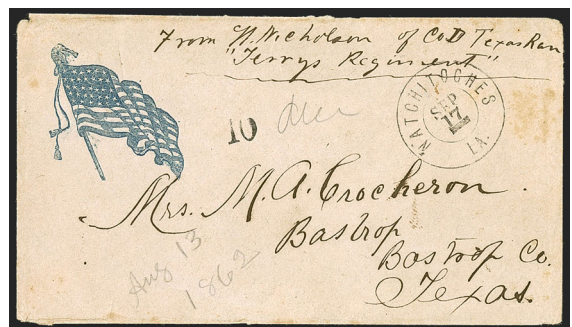 From N. Nicholson of Co D Texas Ran
"Terrys Regiment"
NATCHITOCHES
LA.
SEP
17
10 Due
Mrs. M. A. Crocheron.
Bastrop
Bastrop Co.
Texas.
Aug 13
1862